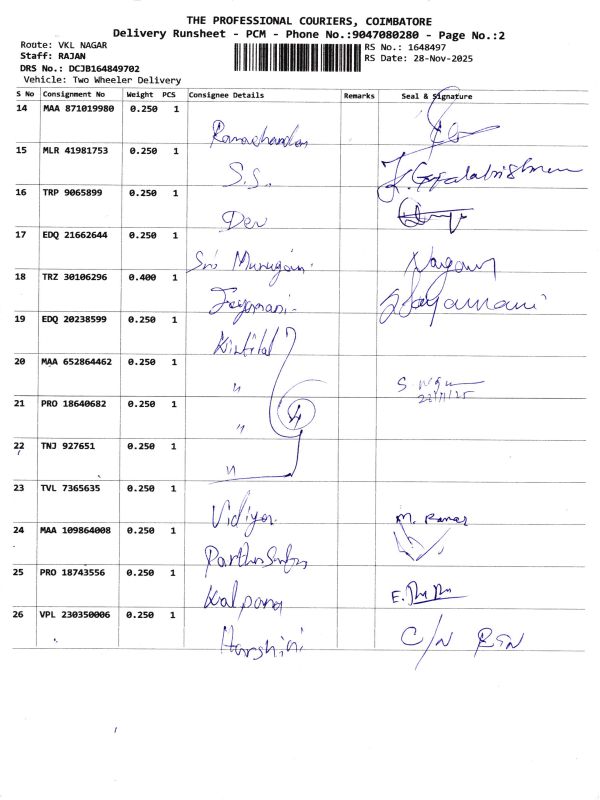 THE PROFESSIONAL COURIERS, COIMBATORE
Delivery Runsheet - PCM - Phone No.:9047080280 - Page No.:2
Route: VKL NAGAR
RS No.: 1648497
Staff: RAJAN
RS Date: 28-Nov-2025
DRS No.: DCJB164849702
Vehicle: Two Wheeler Delivery
S No Consignment No Weight PCS Consignee Details Remarks Seal & Signature
14 MAA 871019980 0.250 1
Ramachandra
15 MLR 41981753 0.250 1
S.S. K. Gopalakrishnan
16 TRP 9065899 0.250 1
Dev
17 EDQ 21662644 0.250 1
Sri Murugan.
18 TRZ 30106296 0.400 1
Jeyamani. Jayamani
19 EDQ 20238599 0.250 1
20 MAA 652864462 0.250 1
" 28/11/25
21 PRO 18640682 0.250 1
" 4
22 TNJ 927651 0.250 1
"
23 TVL 7365635 0.250 1
Vidiya. M.
24 MAA 109864008 0.250 1
25 PRO 18743556 0.250 1
Kalpana E.
26 VPL 230350006 0.250 1
Harshini C/N RTN